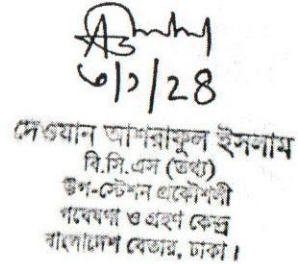 ৩/১/২৪
দেওয়ান আশরাফুল ইসলাম
বি.সি.এস (তথ্য)
উপ-স্টেশন প্রকৌশলী
গবেষণা ও গ্রহণ কেন্দ্র
বাংলাদেশ বেতার, ঢাকা।